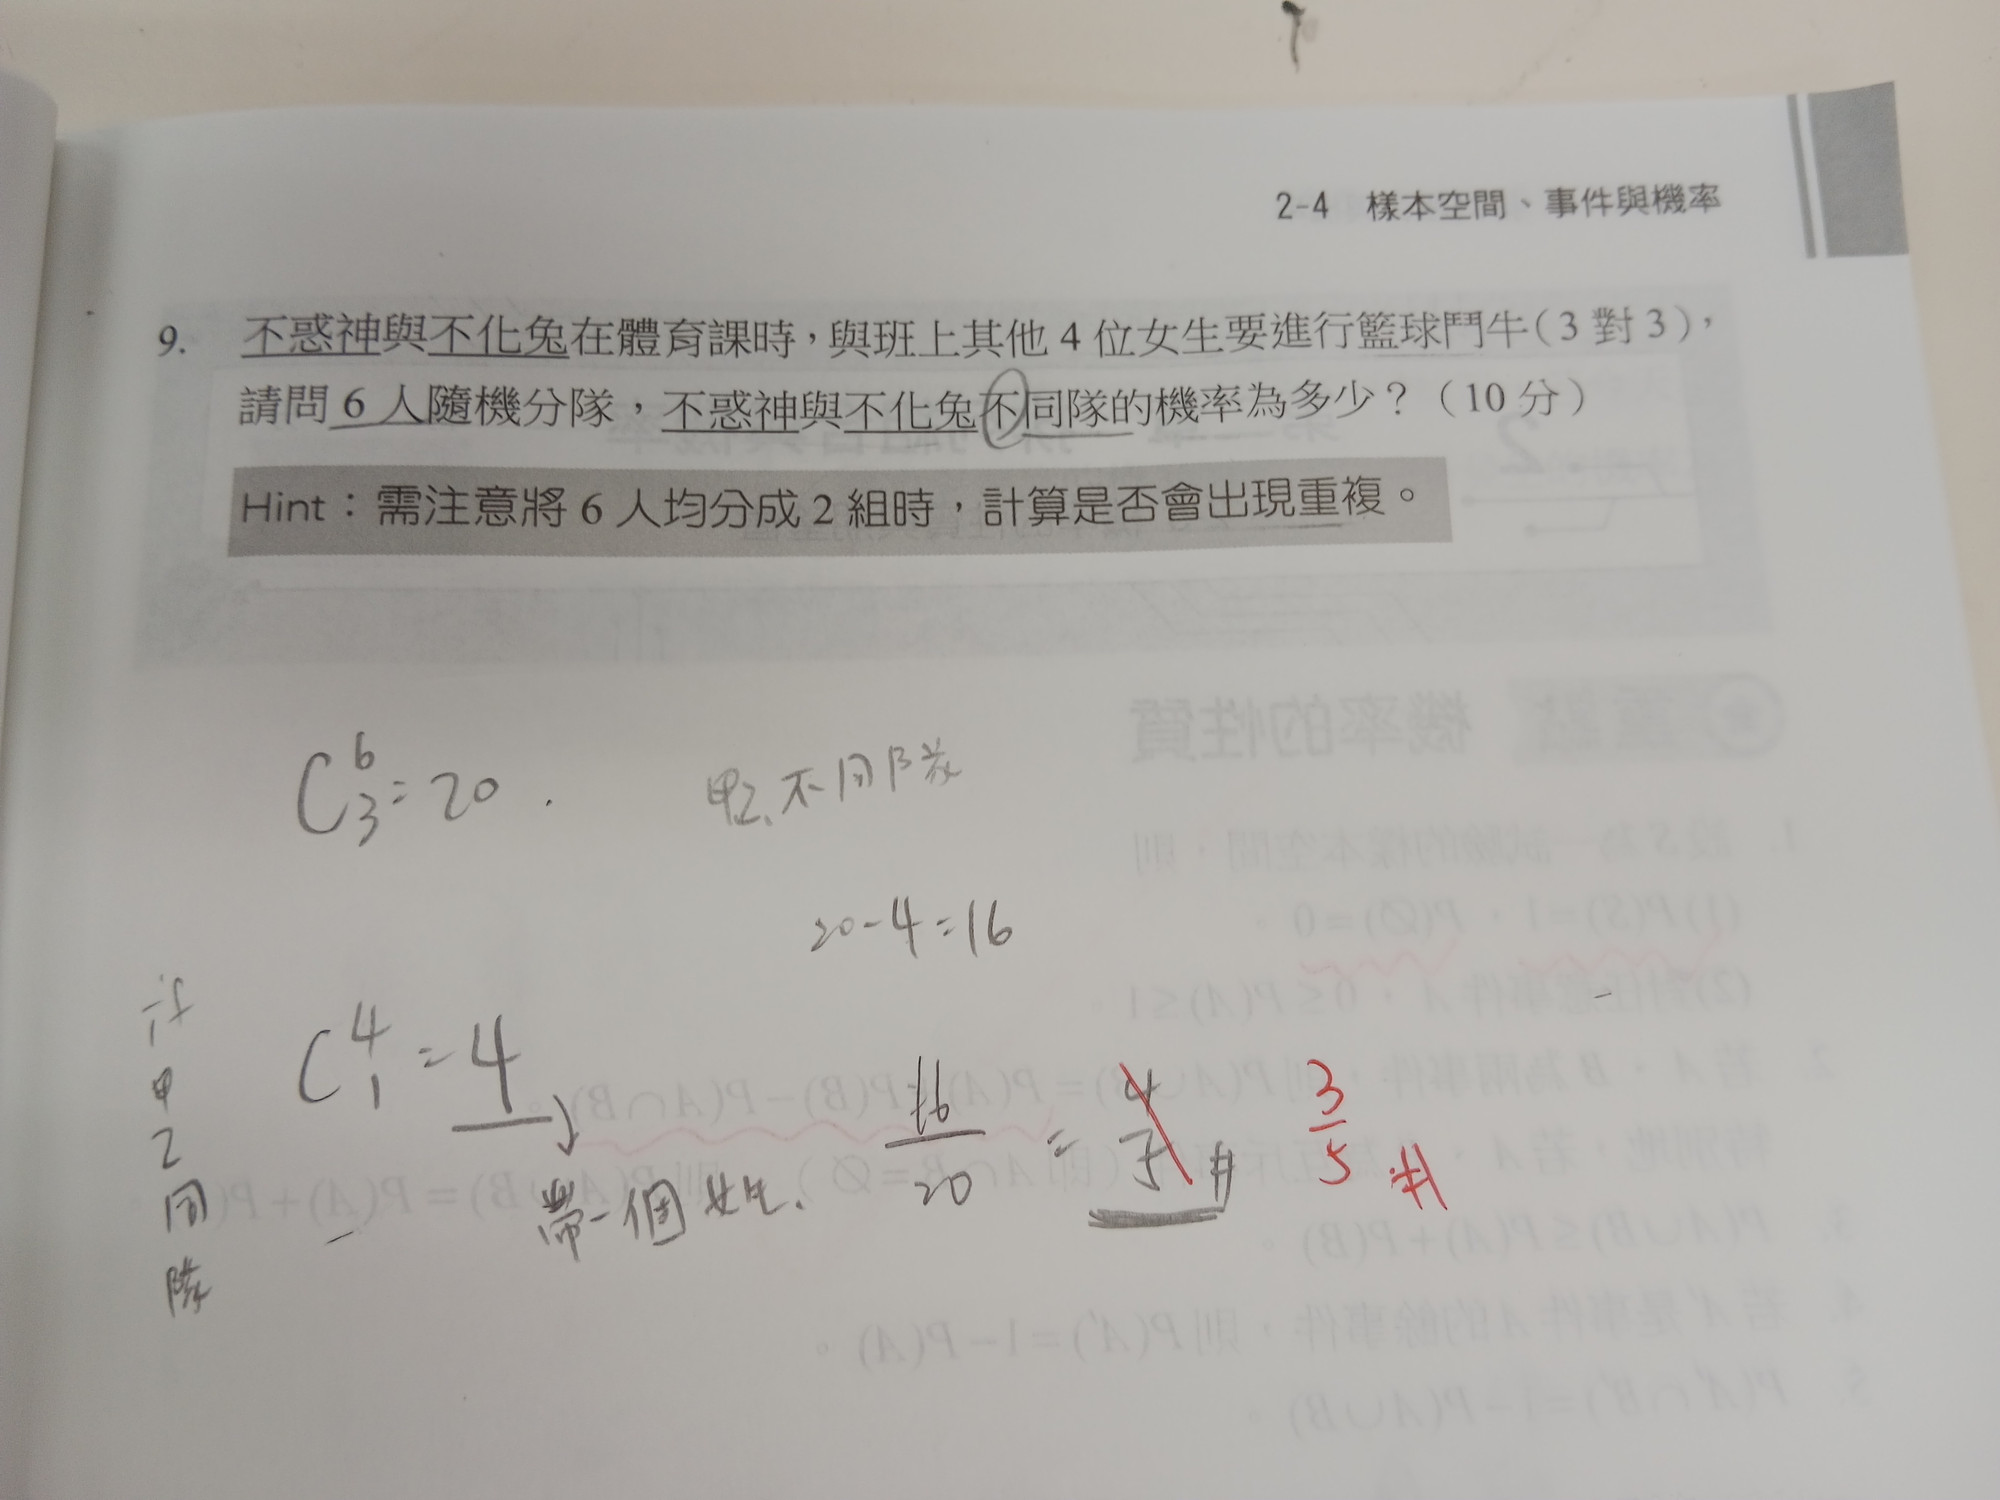 2-4 樣本空間、事件與機率
9. 不惑神與不化兔在體育課時，與班上其他 4 位女生要進行籃球鬥牛(3 對 3)，
請問 6 人隨機分隊，不惑神與不化兔不同隊的機率為多少？（10 分）
Hint：需注意將 6 人均分成 2 組時，計算是否會出現重複。
C⁶₃=20
甲乙不同隊
20-4=16
甲乙同隊
C⁴₁=4
帶一個女生.
16/20 = 4/5 #
3/5 #